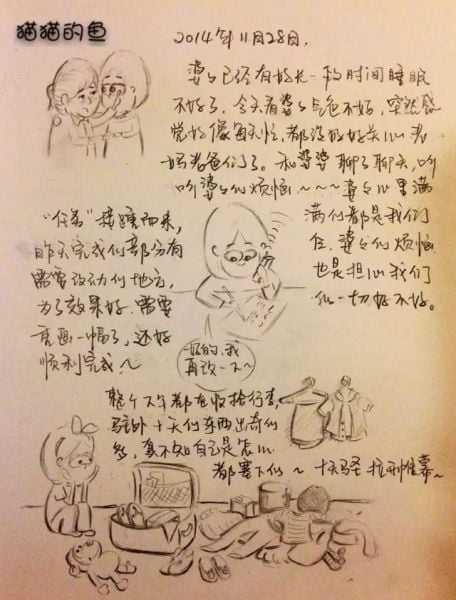 猫猫的鱼
2014年11月28日.
婆婆已经有好长一段时间睡眠
不好了. 今天看婆婆气色不好, 突然感
觉好像每天忙, 都没好好关心老
妈老爸们了。和婆婆聊了聊天, 听
听婆婆的烦恼~~~婆婆心里满
满的都是我们
婆婆的烦恼
也是担心我们
一切好不好。
"任务"接踵而来,
昨天完成的部分有
需要改动的地方,
为了效果好. 需要
重画一幅了, 还好
顺利完成~
好的,我
再改一下~
整个下午都在收拾行李,
驻外十天的东西出奇的
多, 真不知自己是怎么
都要下的~ 十天驻扎拉开帷幕~